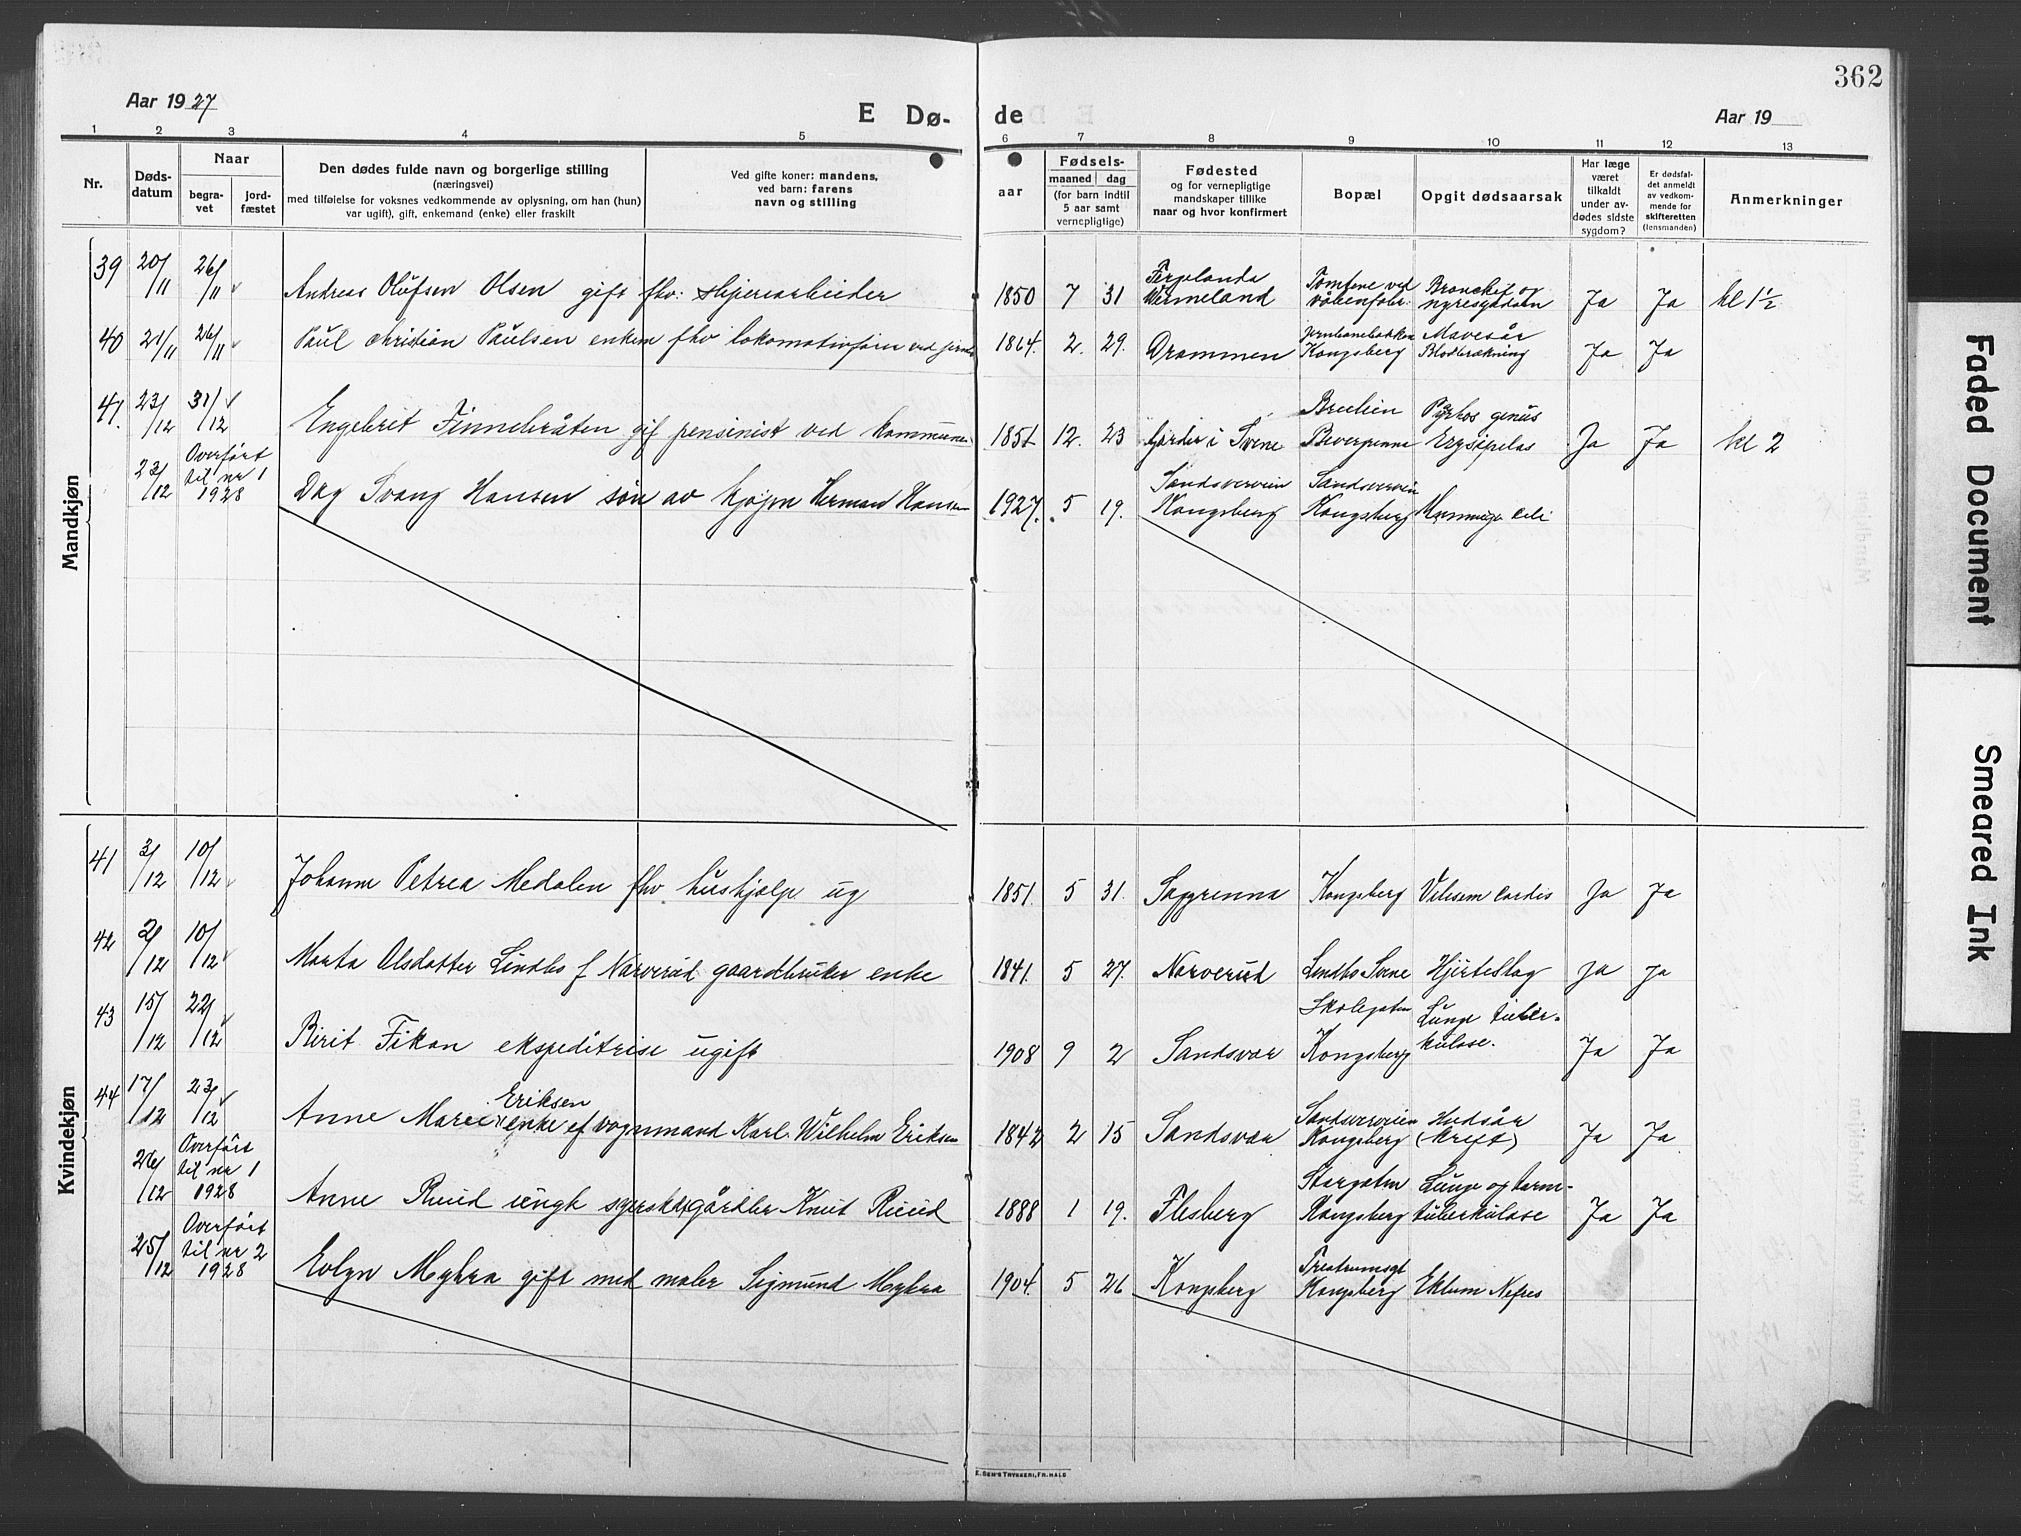 362
Aar 1927
E Dø-
de
Aar 19
1 2 3 4 5 6 7 8 9 10 11 12 13
Nr.
Døds-
datum
Naar
begra-
vet
jord-
fæstet
Den dødes fulde navn og borgerlige stilling
(næringsvei)
med tilføielse for voksnes vedkommende av oplysning, om han (hun)
var ugift), gift, enkemand (enke) eller fraskilt
Ved gifte koner: mandens,
ved barn: farens
navn og stilling
aar
Fødsels-
maaned dag
(for barn indtil
5 aar samt
vernepligtige)
Fødested
og for vernepligtige
mandskaper tillike
naar og hvor konfirmert
Bopæl
Opgit dødsaarsak
Har læge
været
tilkaldt
under av-
dødes sidste
sygdom?
Er dødsfal-
det anmeldt
av vedkom-
mende for
skifteretten
(lensmanden)
Anmerkninger
Mandkjøn
39 20/11 26/11 Andreas Olufsen Olsen gift fhv: 1850 7 31 Vermeland Ja Ja kl 1½
40 21/11 26/11 Paul Christian Paulsen enkem fhv lokomotivfører ved 1864. 2. 29. Drammen
Kongsberg
Mavesår
Blodbrækning Ja Ja
41. 23/12 31/12 Engebret Finnebråten gif pensinist ved kommunen 1851 12. 23 i Svene
Erysipelas Ja Ja kl 2
23/12 Overført
til nr 1
1928 Dag Svang Hansen søn av Herman Hansen 1927. 5 19. Sandsverveien
Kongsberg
Sandsverveien
Kongsberg
Kvindekjøn
41 3/12 10/12 Johanne Petrea Medalen fhv hushjælp ug 1851. 5 31. Saggrenna Kongsberg Ja Ja
42 2/12 10/12 Marta Olsdatter Lindbo f Narverud gaardbruker enke 1841. 5 27. Narverud Lindbo Svene Hjerteslag Ja Ja
43 15/12 22/12 Birit Fikan ekspeditrise ugift 1908 9 2 Sandsvær
Skolegaten
Kongsberg
Lunge tuber-
kulose. Ja Ja
44 17/12 23/12 Anne Marie Eriksen enke ef vognmand Karl Wilhelm Eriksen 1842 2 15 Sandsvær
Sandsverveien
Kongsberg
Hudsår
(kreft) Ja Ja
26/12 Overført
til nr 1
1928 Anne Ruud gårdbr Knut Ruud 1888 1 19. Flesberg
Storgaten
Kongsberg
Lunge og tarm-
tuberkulose Ja Ja
25/12 Overført
til nr 2
1928 Evlyn Myhra gift med maler Sigmund Myhra 1904. 5 26 Kongsberg
Kongsberg
E. SEM'S TRYKKERI, FR.HALD
Faded Document
Smeared Ink